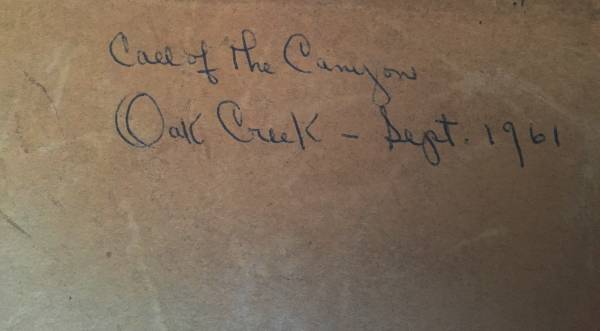 Call of the Canyon
Oak Creek - Sept. 1961